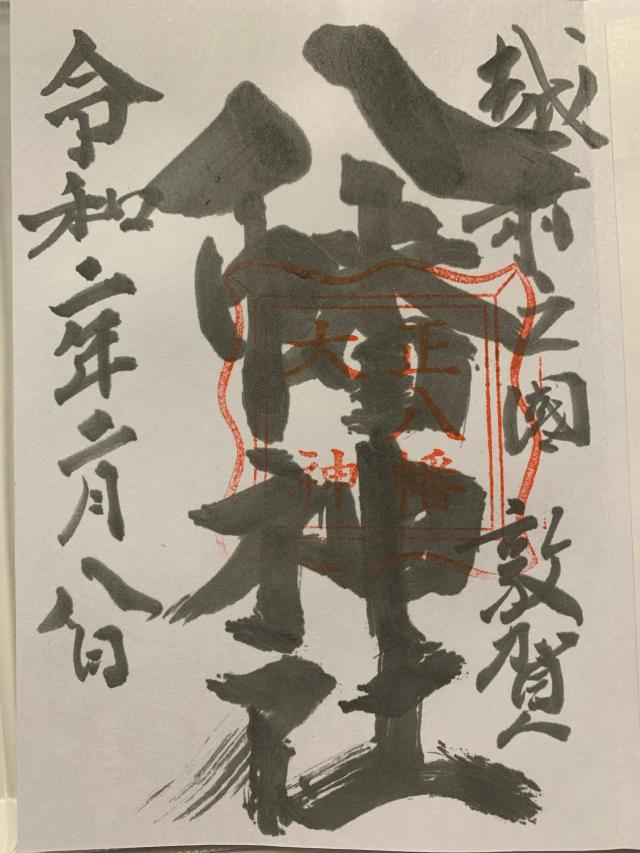 越前国 敦賀
八幡神社
正八幡
大神
令和二年二月八日